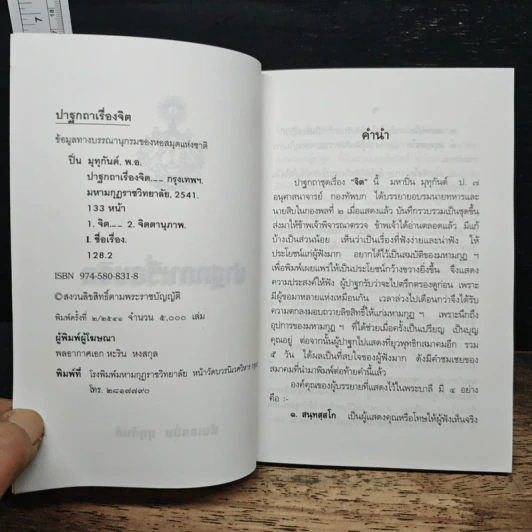 7
ปาฐกถาเรื่องจิต
ข้อมูลทางบรรณานุกรมของหอสมุดแห่งชาติ
ปิ่น มุทุกันต์, พ.อ.
ปาฐกถาเรื่องจิต.-- กรุงเทพฯ.
มหามกุฏราชวิทยาลัย, 2541.
133 หน้า
1. จิต.-- 2. จิตตานุภาพ.
I. ชื่อเรื่อง.
128.2
ISBN 974-580-831-8
©สงวนลิขสิทธิ์ตามพระราชบัญญัติ
พิมพ์ครั้งที่ ๒/๒๕๔๑ จำนวน ๕,๐๐๐ เล่ม
ผู้พิมพ์ผู้โฆษณา
พลอากาศเอก หะริน หงสกุล
พิมพ์ที่ โรงพิมพ์มหามกุฏราชวิทยาลัย หน้าวัดบวรนิเวศวิหาร
โทร. ๒๘๑๗๗๙๐
คำนำ
ปาฐกถาชุดเรื่อง "จิต" นี้ มหาปิ่น มุทุกันต์ ป. ๗
อนุศาสนาจารย์ กองทัพบก ได้บรรยายอบรมนายทหารและ
นายสิบในกองพลที่ ๒ เมื่อแสดงแล้ว บันทึกรวบรวมเป็นชุดขึ้น
ส่งมาให้ข้าพเจ้าพิจารณาตรวจ ข้าพเจ้าได้อ่านตลอดแล้ว มีแก้
บ้างเป็นส่วนน้อย เห็นว่าเป็นเรื่องที่ฟังง่ายและน่าฟัง ให้
ประโยชน์แก่ผู้ฟังมาก อยากได้ไว้เป็นสมบัติของมหามกุฏ ฯ
เพื่อพิมพ์เผยแพร่ให้เป็นประโยชน์กว้างขวางยิ่งขึ้น จึงแสดง
ความประสงค์ให้ฟัง ผู้ปาฐกรับว่าจะไปตรึกตรองดูก่อน เพราะ
มีผู้ขอมาหลายแห่งเหมือนกัน เวลาล่วงไปเดือนกว่าจึงได้รับ
ความตกลงมอบถวายลิขสิทธิ์ให้แก่มหามกุฏ ฯ เพราะนึกถึง
อุปการของมหามกุฏ ฯ ที่ได้ช่วยเมื่อครั้งเป็นเปรียญ เป็นบุญ
คุณอยู่ ต่อจากนั้นผู้ปาฐกไปแสดงที่ยุวพุทธิกสมาคมอีก รวม
๕ วัน ได้ผลเป็นที่สบใจของผู้ฟังมาก ดังมีคำชมเชยของ
สมาคมที่นำมาพิมพ์ต่อท้ายคำนี้แล้ว
องค์คุณของผู้บรรยายที่แสดงไว้ในพระบาลี มี ๔ อย่าง
คือ :-
๑. สนฺทสฺสโก เป็นผู้แสดงคุณหรือโทษให้ผู้ฟังเห็นจริง